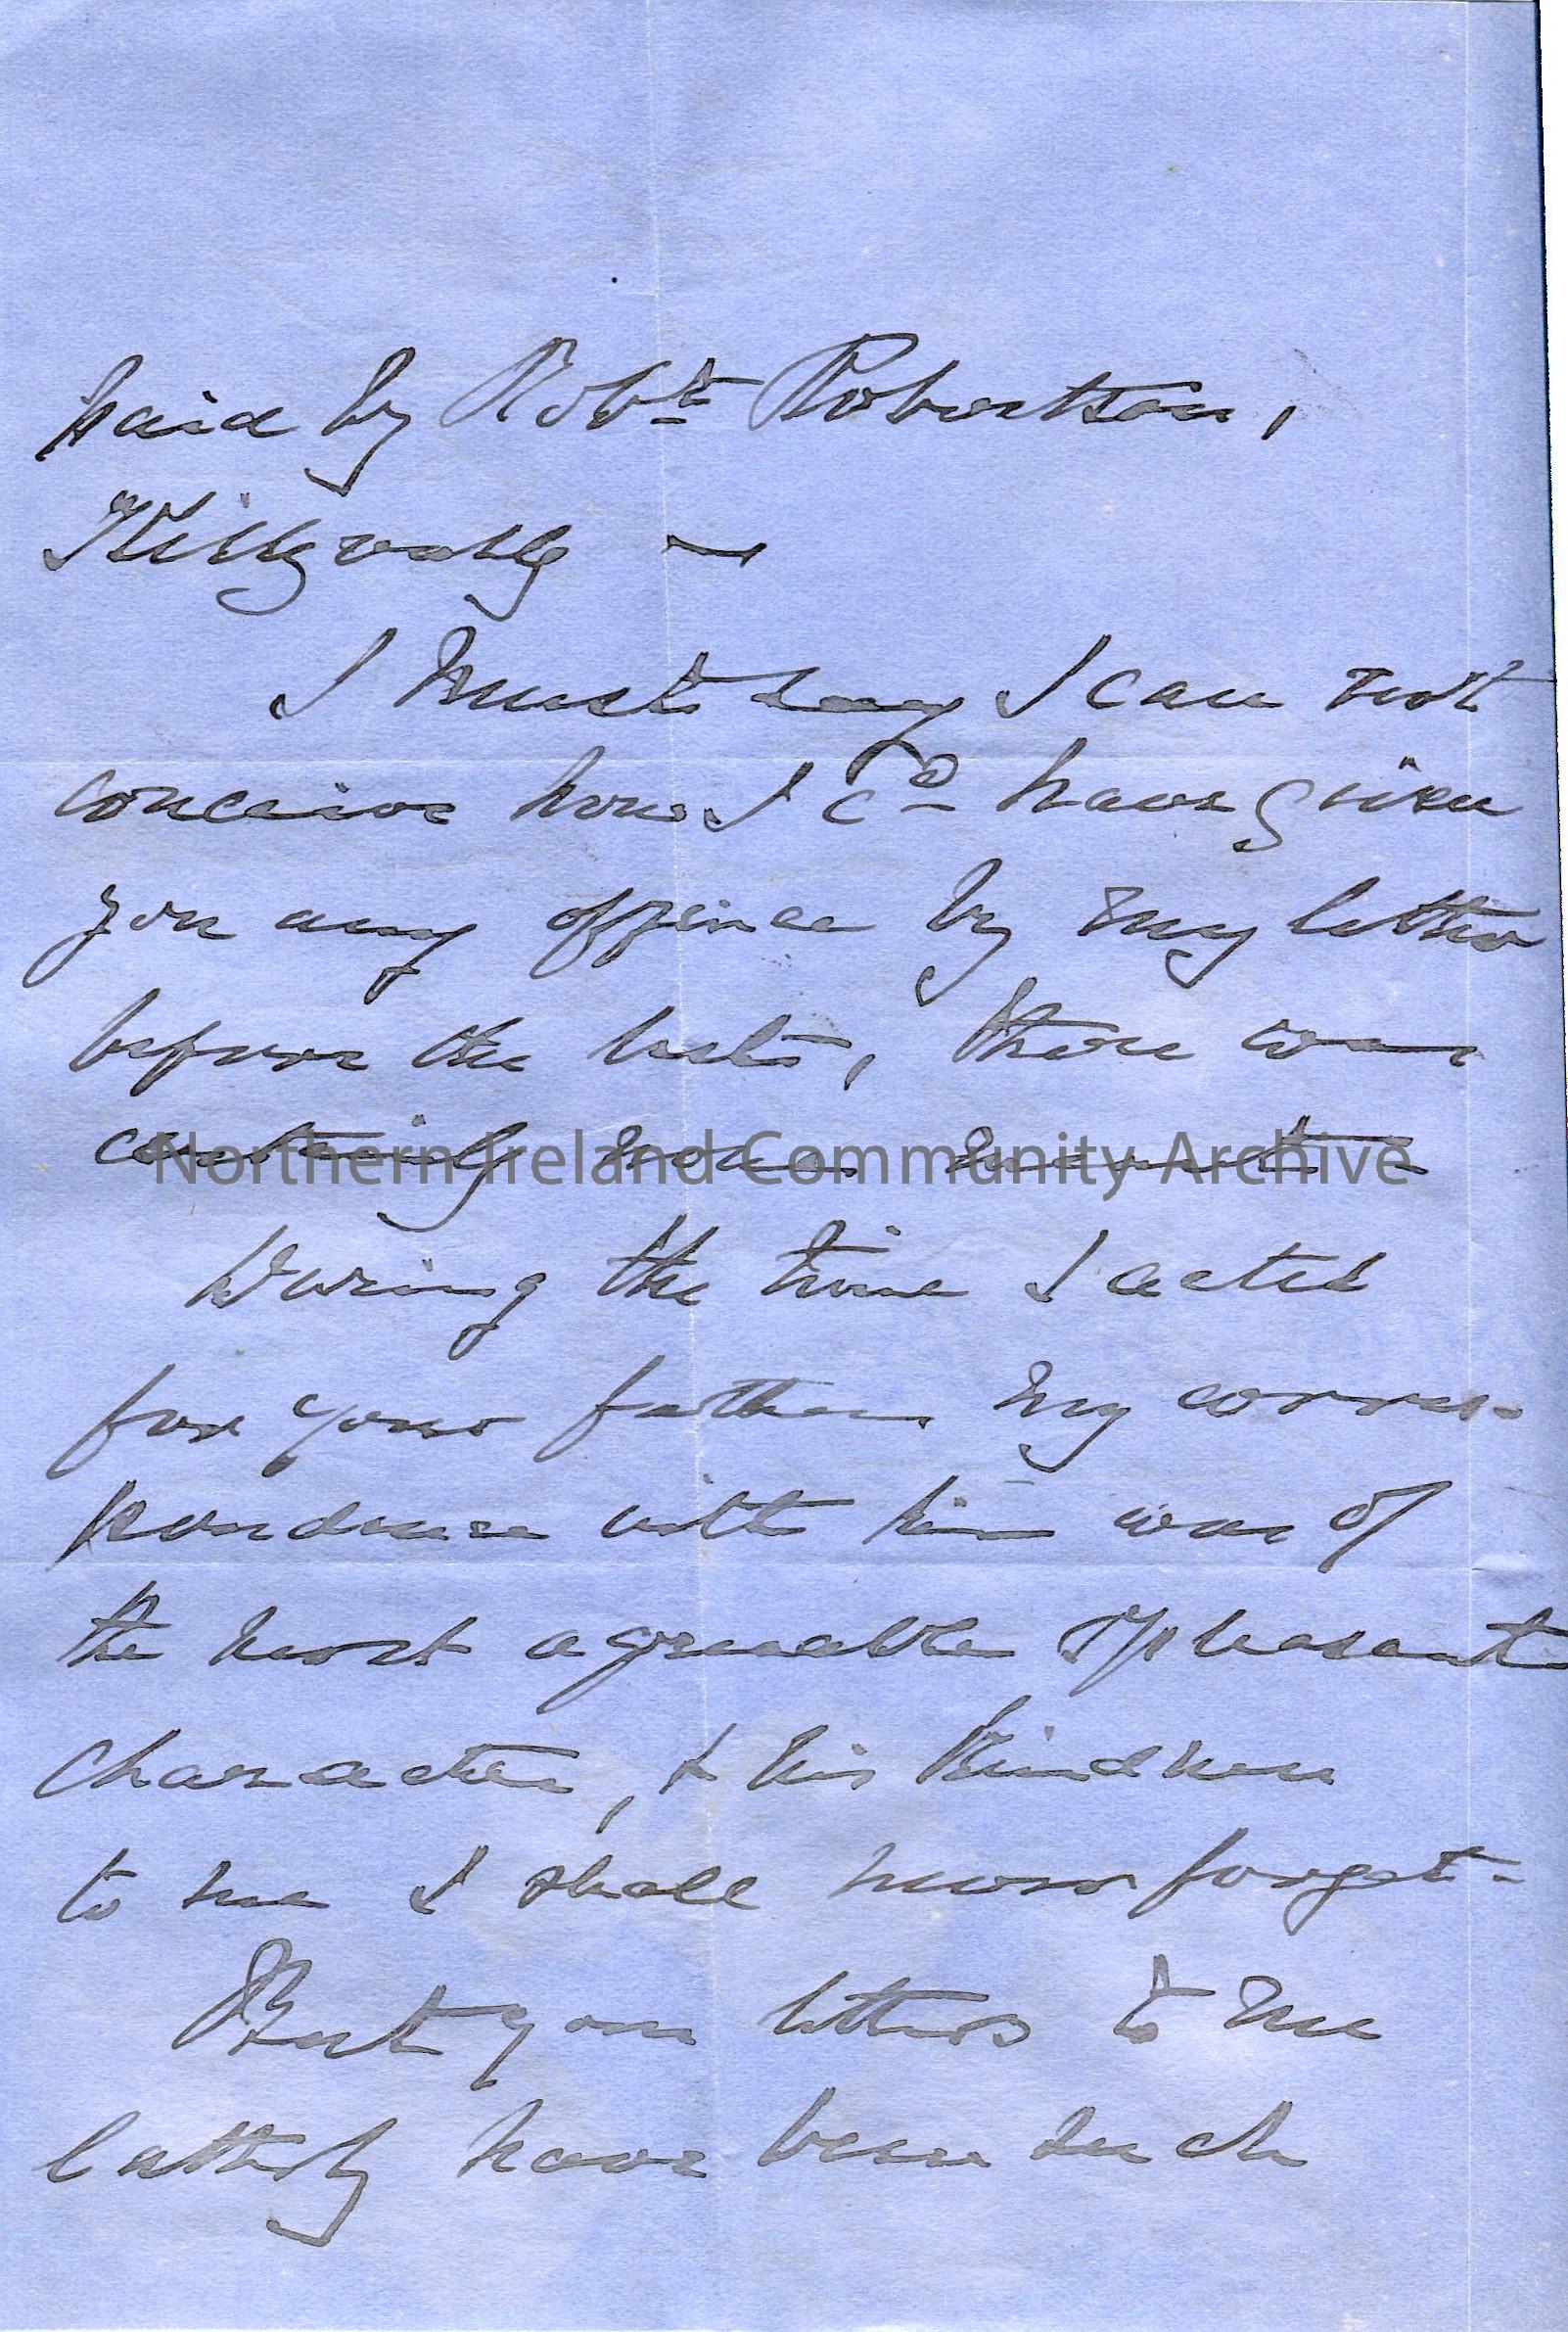 paid by Robt Robertson,
I must say I can not
conceive how I cd have given
you any offence by my letter
before the last, there was
certainly none meant -
Northern Ireland Community Archive
During the time I acted
for your father my corres-
pondence with him was of
the most agreeable & pleasant
character, & his kindness
to me I shall never forget -
But your letters to me
latterly have been such